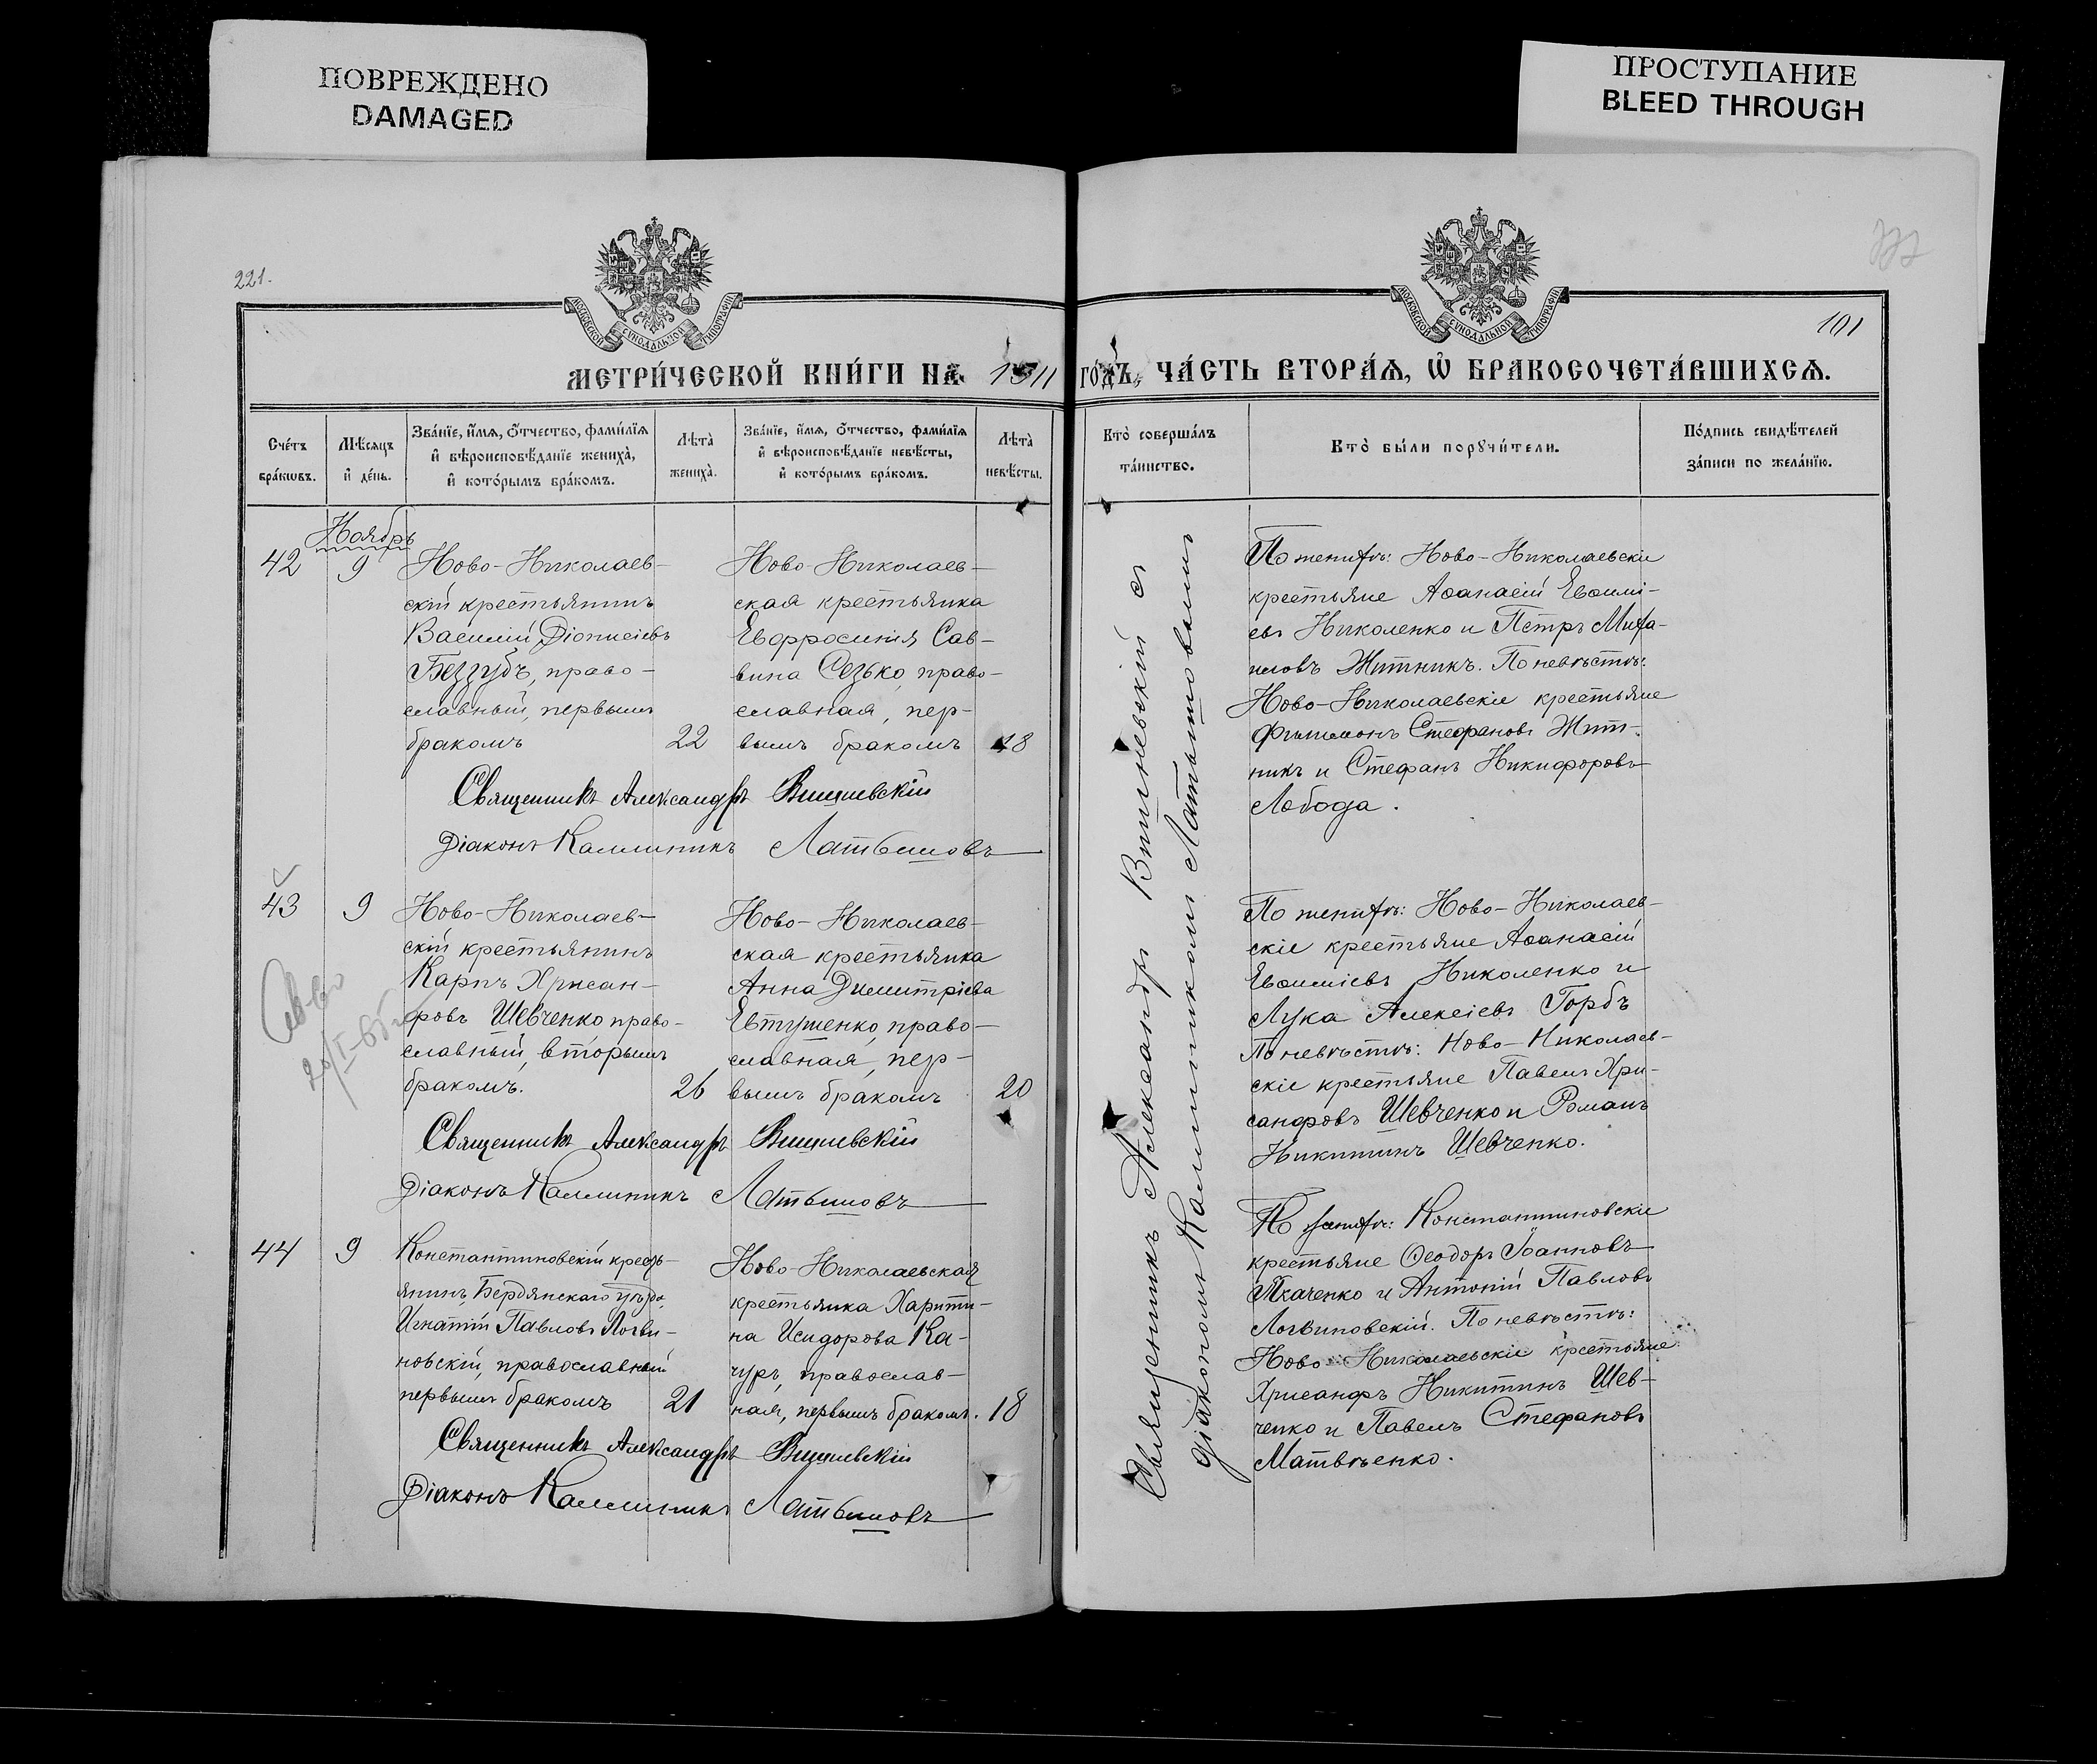 ПОВРЕЖДЕНО
DAMAGED
ПРОСТУПАНИЕ
BLEED THROUGH
221.
101
МОСКОВСКОЙ СѴНОДАЛЬНОЙ ТИПОГРАФІИ
МОСКОВСКОЙ СѴНОДАЛЬНОЙ ТИПОГРАФІИ
МЕТРИ́ЧЕСКОЙ КНИ́ГИ НА 1911 ГО́ДЪ, ЧА́СТЬ ВТОРА́Я, Ѽ БРАКОСОЧЕТА́ВШИХСЯ.
Сче́тъ
бра́кωвъ.
Мѣ́сяцъ
и҆ де́нь.
Зва́нїе, и҆́мя, ѻ҆́тчество, фами́лїя
и҆ вѣроисповѣ́данїе жениха̀,
и҆ кото́рымъ бра́комъ.
Лѣта̀
жениха̀.
Зва́нїе, и҆́мя, ѻ҆́тчество, фами́лїя
и҆ вѣроисповѣ́данїе невѣ́сты,
и҆ кото́рымъ бра́комъ.
Лѣта̀
невѣ́сты.
Кто̀ соверша́лъ
та́инство.
Кто̀ бы́ли порꙋчи́тели.
По́дпись свидѣ́телей
за́писи по жела́нїю.
Ноябрь
42
9
Ново-Николаев-
скій крестьянинъ
Василій Діонисіевъ
Беззубъ, право-
славный, первымъ
бракомъ
22
Ново-Николаев-
ская крестьянка
Евфросинія Сав-
вина Сезько, право-
славная, пер-
вымъ бракомъ
18
Священникъ Александръ Вишневскій
Діаконъ Каллиникъ Латышовъ
По женихѣ: Ново-Николаевскіе
крестьяне Аѳанасій Евѳимі-
евъ Николенко и Петръ Миха-
иловъ Житникъ. По невѣстѣ:
Ново-Николаевскіе крестьяне
Филимонъ Стефановъ Жит-
никъ и Стефанъ Никифоровъ
Лобода.
43
9
Ново-Николаев-
скій крестьянинъ
Карпъ Хрисан-
фовъ Шевченко право-
славный, вторымъ
бракомъ.
26
Ново-Николаев-
ская крестьянка
Анна Димитріева
Евтушенко, право-
славная, пер-
вымъ бракомъ
20
Священникъ Александръ Вишневскій
Діаконъ Каллиникъ Латышовъ
По женихѣ: Ново-Николаев-
скіе крестьяне Аѳанасій
Евѳиміевъ Николенко и
Лука Алексіевъ Горбъ
По невѣстѣ: Ново-Николаев-
скіе крестьяне Павелъ Хри-
санфовъ Шевченко и Романъ
Никитинъ Шевченко.
44
9
Константиновскій кресть-
янинъ, Бердянскаго уѣзда,
Игнатій Павловъ Логви-
новскій, православный
первымъ бракомъ
21
Ново-Николаевская
крестьянка Харити-
на Исидорова Ка-
чуръ, православ-
ная, первымъ бракомъ.
18
Священникъ Александръ Вишневскій
Діаконъ Каллиникъ Латышовъ
По женихѣ: Константиновскіе
крестьяне Ѳеодоръ Іоанновъ
Ткаченко и Антоній Павловъ
Логвиновскій. По невѣстѣ:
Ново-Николаевскіе крестьяне
Хрисанфъ Никитинъ Шев-
ченко и Павелъ Стефановъ
Матвѣенко.
Священникъ Александръ Вишневскій съ
діакономъ Каллиникомъ Латышовымъ